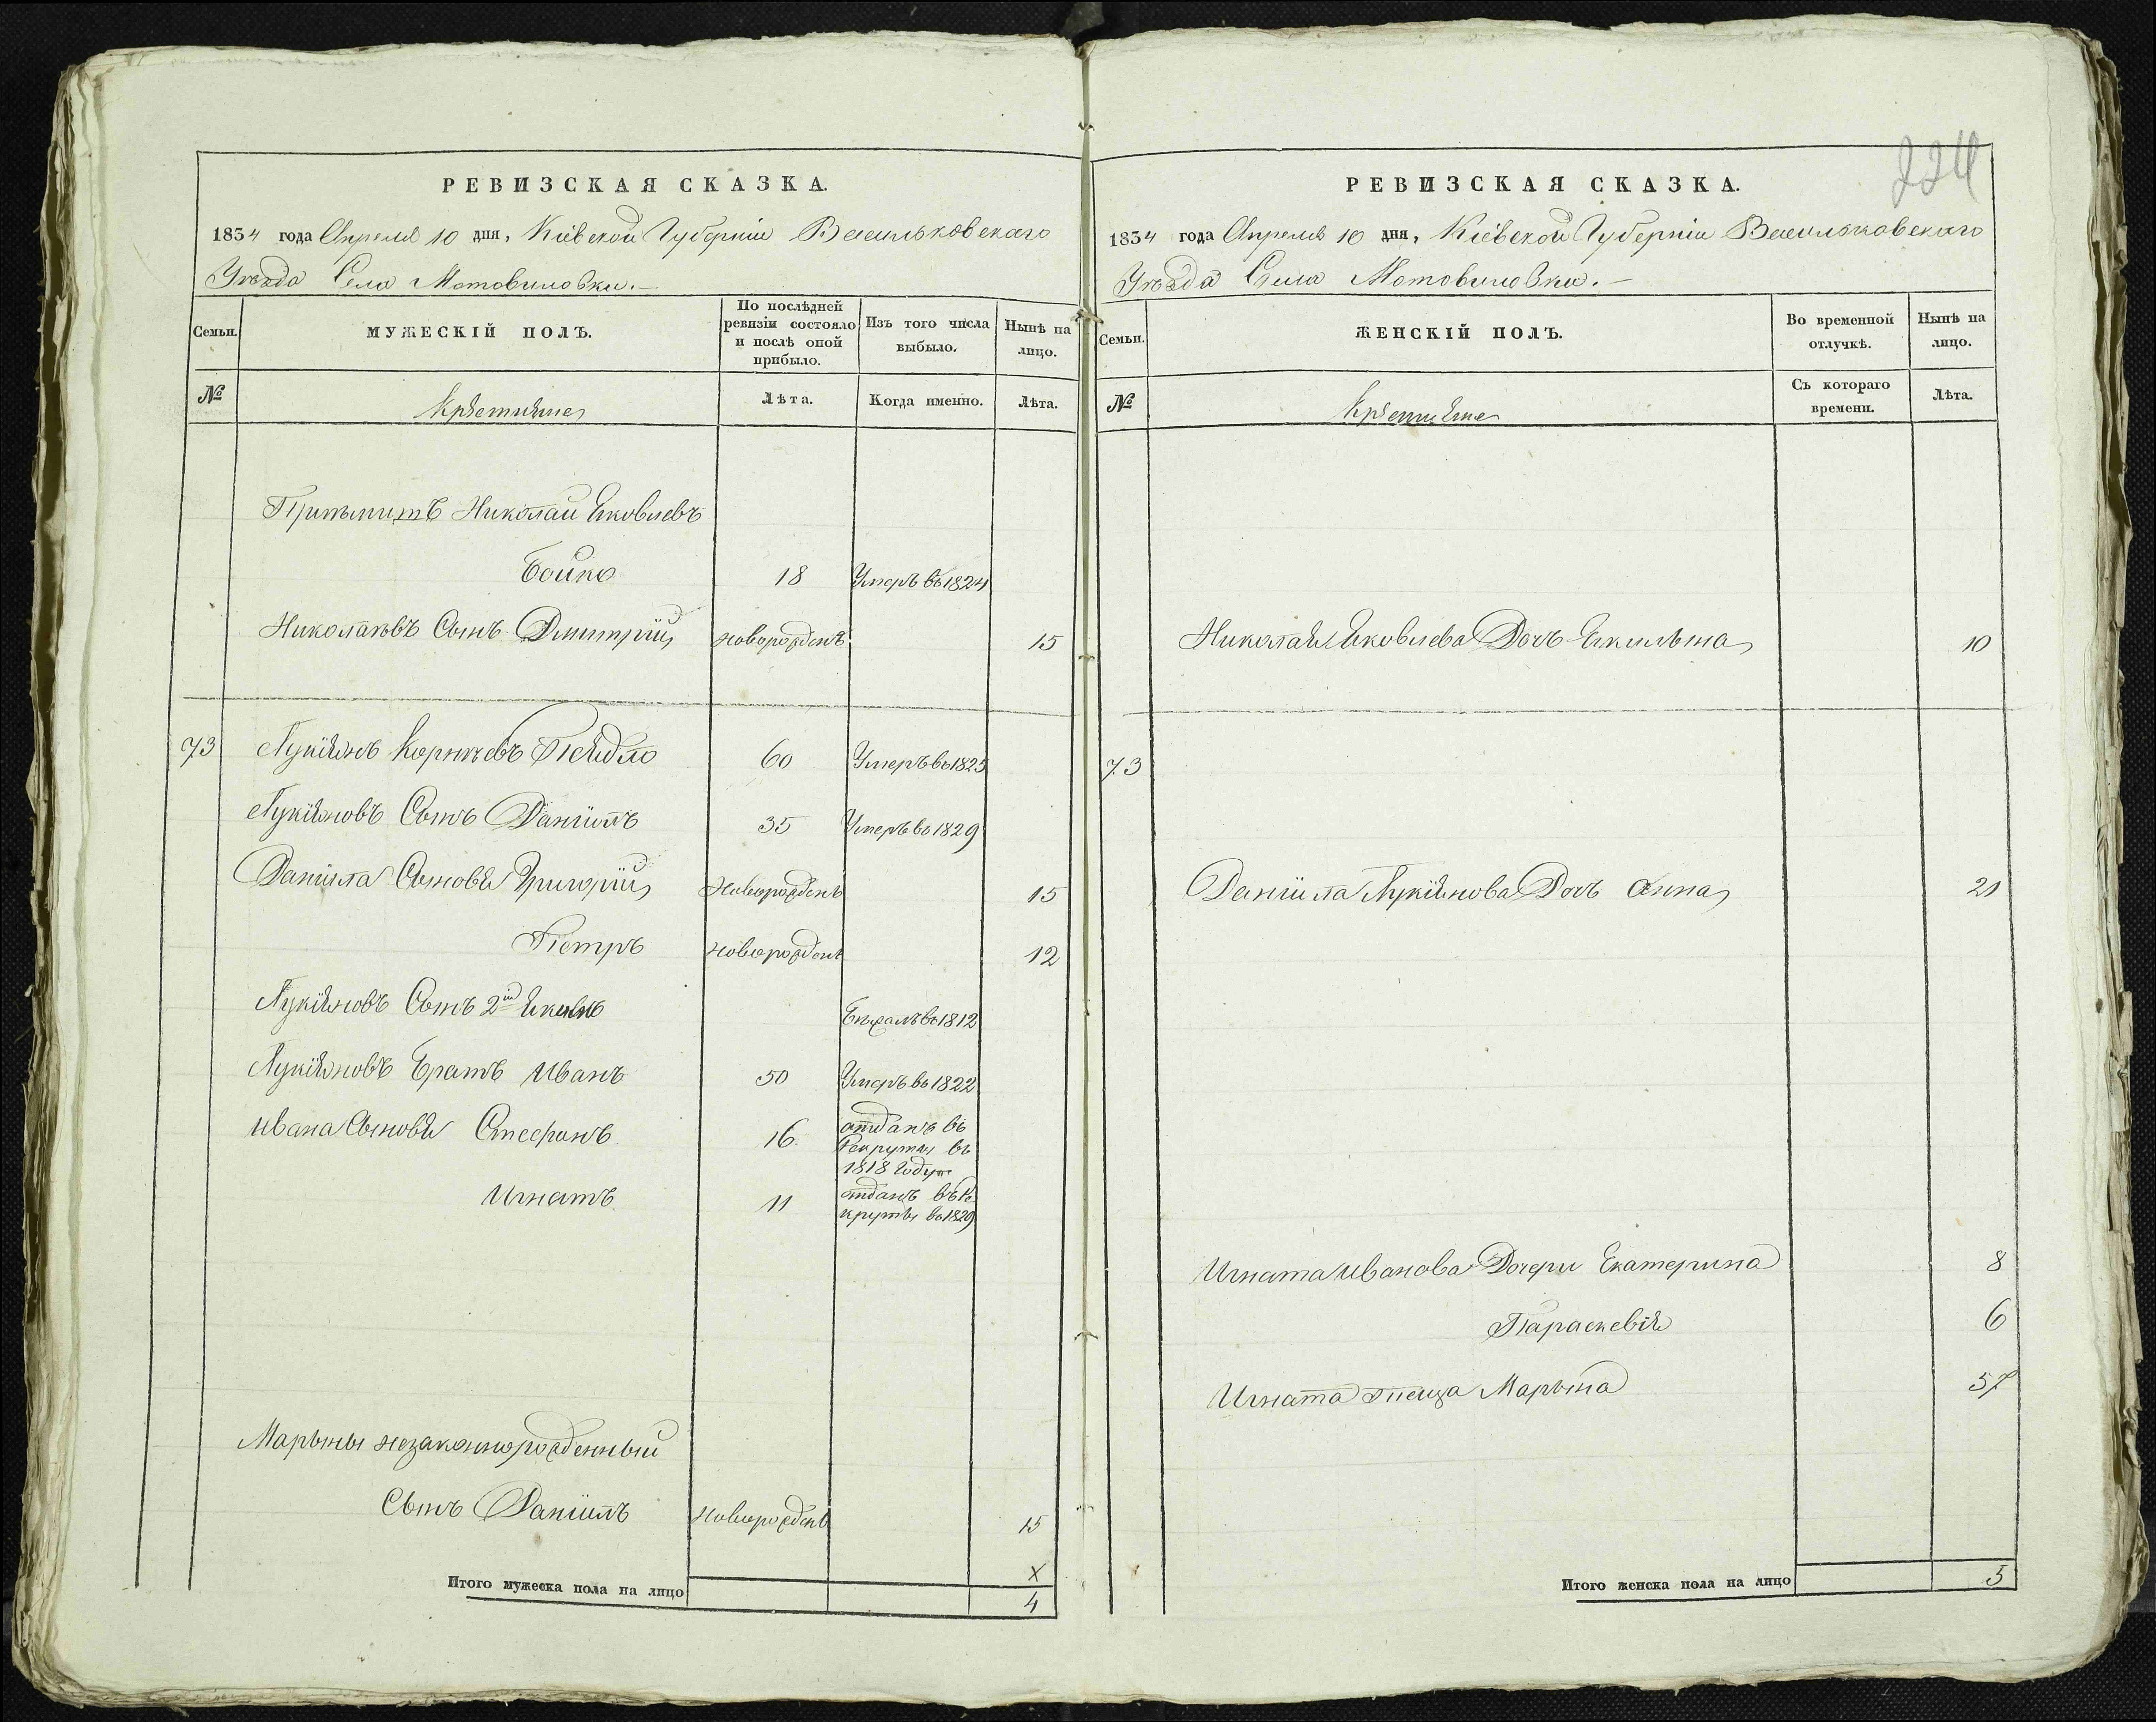 РЕВИЗСКАЯ СКАЗКА.
1834 года Апреля 10 дня, Кіевской Губерніи Васильковскаго
Уезда Села Мотовиловки.
Семьи.
МУЖЕСКІЙ ПОЛЪ.
По послѣдней ревизіи состояло и послѣ оной прибыло.
Изъ того числа выбыло.
Нынѣ на лицо.
№
Крестяне
Лѣта.
Когда именно.
Лѣта.
Николай Яковлевъ
Бойко 18 Умеръ въ 1824
Николаевъ Сынъ Дмитрій новорожденъ 15
73 Лукіянъ Корнѣевъ 60 Умеръ въ 1825
Лукіяновъ Сынъ Даніилъ 35 Умеръ въ 1829
Даніила Сыновя Григорій Новорожденъ 15
Петръ новорожденъ 12
Лукіяновъ Сынъ 2й Яковъ Бежалъ въ 1812
Лукіяновъ Братъ Иванъ 50 Умеръ въ 1822
Ивана Сыновя Стефанъ 16. отданъ въ
Рекруты въ
1818 Году
Игнатъ 11 отданъ въ Ре
круты въ 1829
Марыны незаконнорожденный
Сынъ Даніилъ Новорожденъ 15
х
Итого мужеска пола на лицо 4
224
РЕВИЗСКАЯ СКАЗКА.
1834 года Апреля 10 дня, Кіевской Губерніи Васильковскаго
Уезда Села Мотовиловки.
Семьи.
ЖЕНСКІЙ ПОЛЪ.
Во временной отлучкѣ.
Нынѣ на лицо.
№
Крестяне
Съ котораго времени.
Лѣта.
Николая Яковлева Дочь 10
73
Даніила Лукіянова Дочь Анна 21
Игната Иванова Дочери Екатерина 8
Параскевія 6
Игната теща Марына 57
Итого женска пола на лицо 5